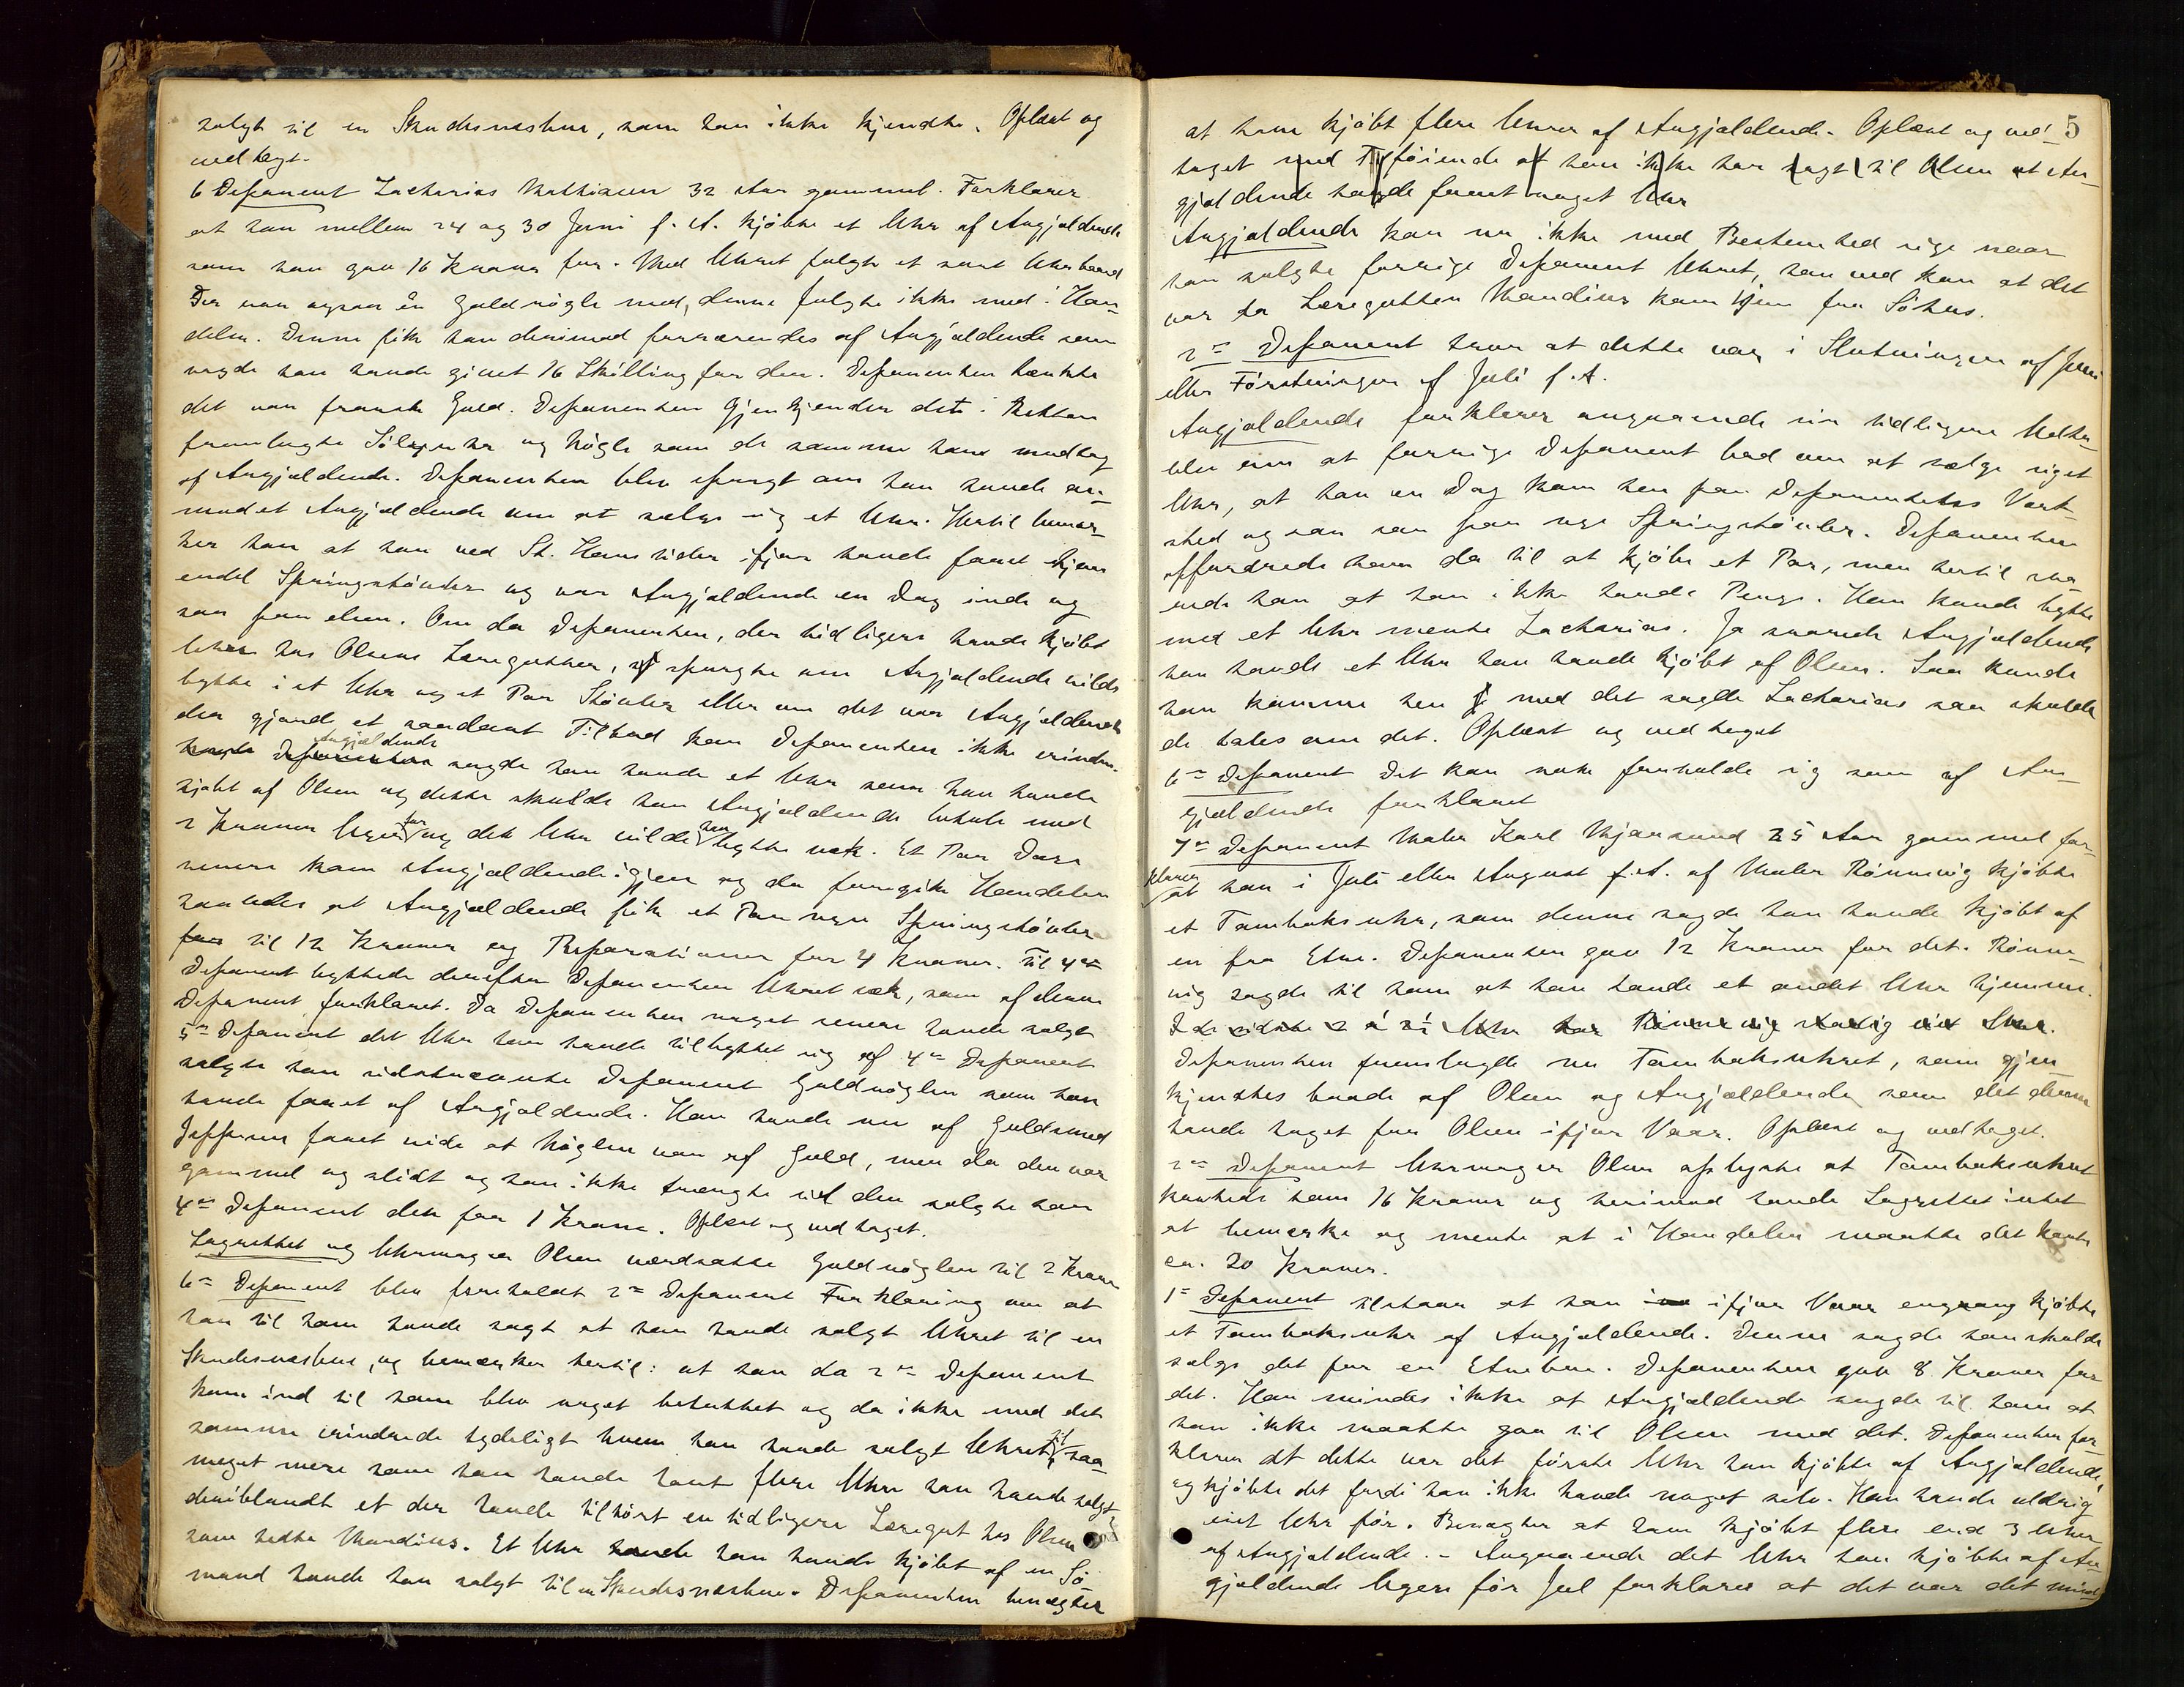 solgt til en Skudesnæsbue, som han ikke kjendte. Oplæst og
vedtaget.
6 Deponent Zacharias Mathiasen 32 Aar gammel. Forklarer
at han mellem 24 og 30 Juni f. A. kjøbte et Uhr af Angjældende
som han gav 16 Kroner for. Med Uhret fulgte et sort Uhrbaand
Der var ogsaa én Guldnøgle med, denne fulgte ikke med i Han-
delen. Denne fik han derimod forærendes af Angjældende som
sagde han havde givet 16 Skilling for den. Deponenten tænkte
det var fransk Guld. Deponenten gjenkjender det i Retten
fremlagte Sølvuhr og Nøgle som de samme han modtog
af Angjældende. Deponenten blev spurgt om han havde an-
modet Angjældende om at sælge sig et Uhr. Hertil bemær-
ker han at han ved St. Hans tider ifjor havde faaet hjem
endel Springstøvler og var Angjældende en Dag inde og
saa paa dem. Om da Deponenten, der tidligere havde kjøbt
Uhre hos Olsens Læregutter, spurgte om Angjældende vilde
bytte i et Uhr og et Par Støvler eller om det var Angjældende
der gjorde et saadant Tilbud kan Deponenten ikke erindre.
Angjældende
sagde han havde et Uhr som han havde
kjøbt af Olsen og dette skulde han Angjældende betale med
2 Kroner Ugen for og det Uhr vilde han bytte væk. Et Par Dage
senere kom Angjældende igjen og da foregik Handelen
saaledes at Angjældende fik et Par nye Springstøvler
for til 12 Kroner og Reparationer for 4 Kroner. Til 4de
Deponent byttede derefter Deponenten Uhret væk, som af denne
Deponent forklaret. Da Deponenten noget senere havde solgt
5te Deponent det Uhr han havde tilbyttet sig af 4de Deponent
solgte han sidstnævnte Deponent Guldnøglen som han
havde faaet af Angjældende. Han havde nu af Guldsmed
Jeppesen faaet vide at Nøglen var af Guld, men da den var
gammel og slidt og han ikke trængte til den solgte han
4de Deponent den for 1 Krone. Oplæst og vedtaget.
Lagrettet og Uhrmager Olsen værdsatte Guldnøglen til 2 Kroner
6te Deponent blev foreholdt 2den Deponent Forklaring om at
han til ham havde sagt at han havde solgt Uhret til en
Skudesnæsbue, og bemærker hertil: at han da 2den Deponent
kom ind til ham blev noget betuttet og da ikke med det
samme erindrede tydeligt hvem han havde solgt Uhret til saa
meget mere som han havde havt flere Uhre han havde solgt
deriblandt et der havde tilhørt en tidligere Læregut hos Olsen
som hedte Mandius. Et Uhr han havde kjøbt af en Sø-
mand havde han solgt til en Skudesnæsbue. Deponenten benægter
5
at have kjøbt flere Uhrer af Angjældende. Oplæst og ved-
taget med Tilføiende at han ikke har sagt til Olsen at An-
gjældende havde faaet noget Uhr
Angjældende kan nu ikke med Bestemthed sige naar
han solgte forrige Deponent Uhret, han ved kun at det
var da Læregutten Mandius kom hjem fra Søhus.
2den Deponent tror at dette var i Slutningen af Juni
eller Førstningen af Juli f. A.
Angjældende forklarer angaaende sin tidligere Udta-
lelse om at forrige Deponent bad om at sælge siget
Uhr, at han en Dag kom hen paa Deponentens Verk-
sted og saa han paa nye Springstøvler. Deponenten
opfordrede ham da til at kjøbe et Par, men hertil sva-
rede han at han ikke havde Penge. Han kunde bytte
med et Uhr mente Zacharias. Ja svarede Angjældende
han havde et Uhr han havde kjøbt af Olsen. Saa kunde
han komme hen med det sagde Zacharias saa skulde
de tales om det. Oplæst og vedtaget
6te Deponent Det kan nok forholde sig som af An-
gjældende forklaret
7de Deponent Maler Karl Kjærsund 25 Aar gammel for-
klarer at han i Juli eller August f. A. af Maler Rønnevig kjøbte
et Tambaksuhr, som denne sagde han havde kjøbt af
en fra Etne. Deponenten gav 12 Kroner for det. Rønne-
vig sagde til ham at han havde et andet Uhr hjemme.
Deponenten fremlagde nu Tambaksuhret, som gjen-
kjendtes baade af Olsen og Angjældende som det denne
havde taget fra Olsen ifjor Vaar. Oplæst og vedtaget.
2den Deponent Uhrmager Olsen oplyste at Tambaksuhret
kostede ham 16 Kroner og herimod havde Lagrettet intet
at bemærke og mente at i Handelen maatte det koste
ca. 20 Kroner.
1ste Deponent tilstaar at han ifjor Vaar engang kjøbte
et Tambaksuhr af Angjældende. Denne sagde han skulde
sælge det for en Etnebue. Deponenten gav 8 Kroner for
det. Han mindes ikke at Angjældende sagde til ham at
han ikke maatte gaa til Olsen med det. Deponenten for-
klarer at dette var det første Uhr han kjøbte af Angjældende,
og kjøbte det fordi han ikke havde noget selv. Han havde aldrig
eiet Uhr før. Benægter at have kjøbt flere end 3 Uhre
af Angjældende. - Angaaende det Uhr han kjøbte af An-
gjældende ligere før Jul forklarer at det var det mind-